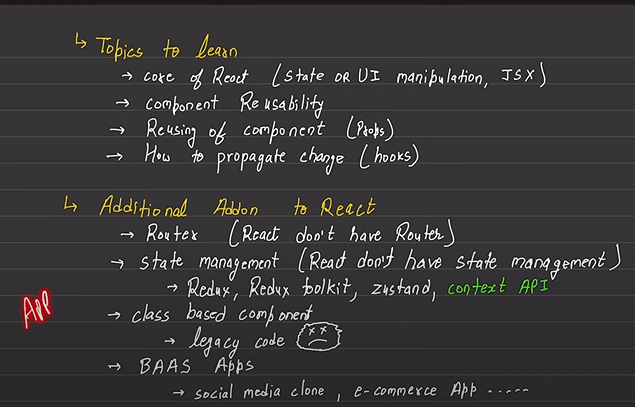 ↳ Topics to learn
→ core of React (state or UI manipulation, JSX)
→ component Reusability
→ Reusing of component (Props)
→ How to propagate change (hooks)
↳ Additional Addon to React
→ Router (React don't have Router)
→ state management (React don't have state management)
→ Redux, Redux toolkit, zustand, context API
→ class based component
→ legacy code
→ BAAS Apps
→ social media clone, e-commerce App .....
App